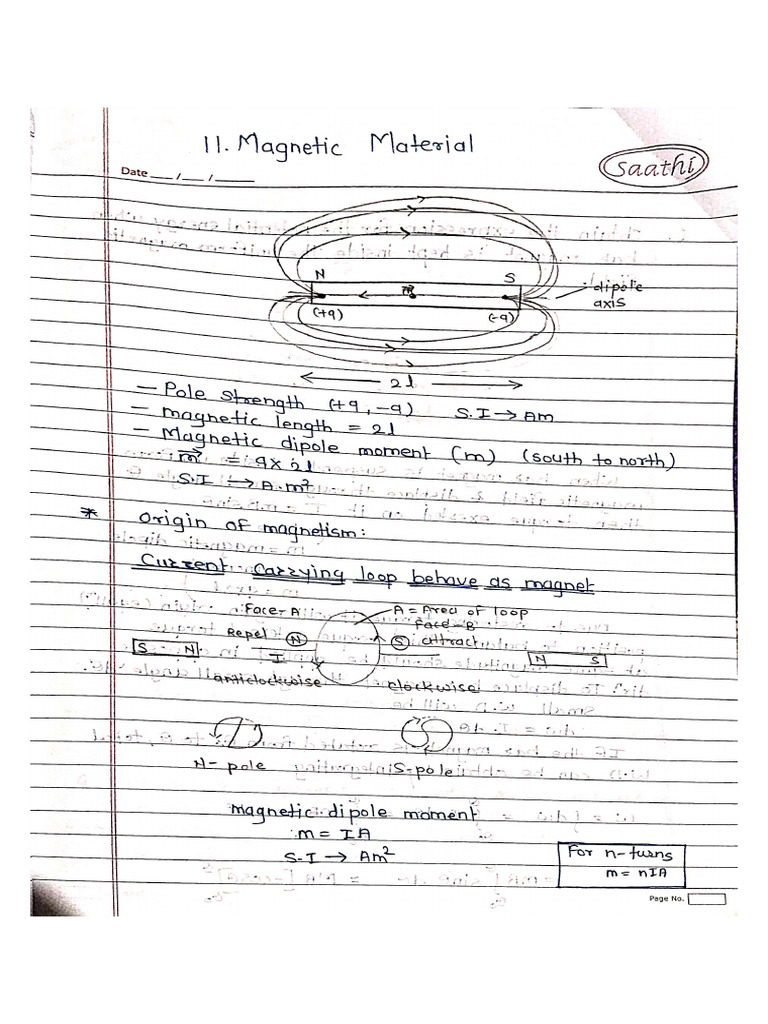 11. Magnetic Material
Date __/__/____
saathi
N S
m⃗
dipole
axis
(+q) (-q)
2l
- Pole strength (+q, -q) S.I → Am
- magnetic length = 2l
- Magnetic dipole moment (m) (south to north)
m⃗ = q×2l
S.I → A.m²
* origin of magnetism:
Current Carrying loop behave as magnet
Face-A A = Area of loop
Face-B
Repel N S attract
S N I N S
anticlockwise clockwise
N- pole S-pole
magnetic dipole moment
m = IA
S.I → Am²
For n-turns
m = nIA
Page No.